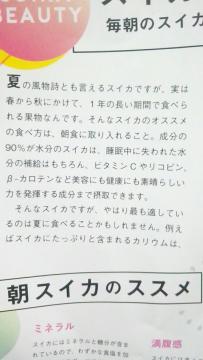 BEAUTY
毎朝のスイカ
夏の風物詩とも言えるスイカですが、実は
春から秋にかけて、1年の長い期間で食べら
れる果物なんです。そんなスイカのオススメ
の食べ方は、朝食に取り入れること。成分の
90%が水分のスイカは、睡眠中に失われた水
分の補給はもちろん、ビタミンCやリコピン、
β-カロテンなど美容にも健康にも素晴らし
い力を発揮する成分まで摂取できます。
そんなスイカですが、やはり最も適してい
るのは夏に食べることかもしれません。例え
ばスイカにたっぷりと含まれるカリウムは、
朝スイカのススメ
ミネラル
満腹感
スイカにはミネラルと糖分が含ま
れているので、わずかな食塩を加